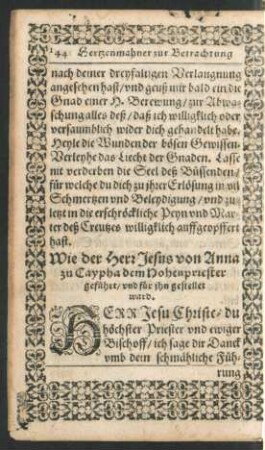 144 Hertzenmahner zur Betrachtung
nach deiner dreyfaltigen Verlaugnung
angesehen hast / vnd geuß mir bald ein die
Gnad einer H. Berewung / zur Abwa-
schung alles deß / daß ich williglich oder
versaumblich wider dich gehandelt habe.
Heyle die Wunden der bösen Gewissen.
Verleyhe das Liecht der Gnaden. Lasse
nit verderben die Seel deß Büssenden /
für welche du dich zu jhrer Erlösung in vil
Schmertzen vnd Beleydigung / vnd zu
letzt in die erschröckliche Peyn vnd Mar-
ter deß Creutzes williglich auffgeopffert
hast.
Wie der Herr Jesus von Anna
zu Caypha dem Hohenpriester
geführet / vnd für ihn gestellet
ward.
HERR Jesu Christe / du
höchster Priester vnd ewiger
Bischoff / ich sage dir Danck
vmb dein schmähliche Füh-
rung